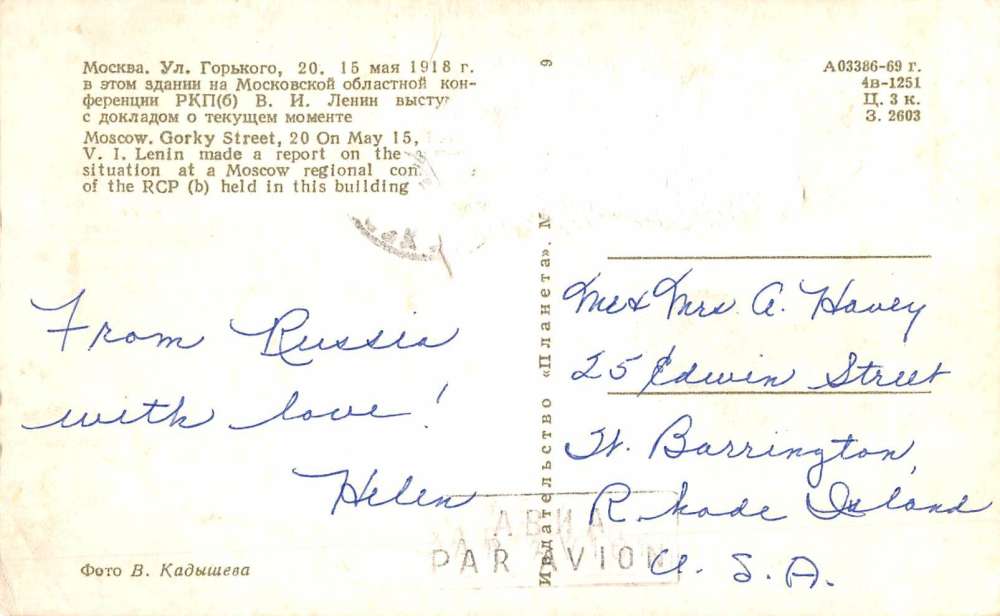 Москва. Ул. Горького, 20. 15 мая 1918 г.
в этом здании на Московской областной кон-
ференции РКП(б) В. И. Ленин высту
с докладом о текущем моменте
Moscow. Gorky Street, 20 On May 15,
V. I. Lenin made a report on the
situation at a Moscow regional con
of the RCP (b) held in this building
From Russia
with love!
Helen
Фото В. Кадышева
Издательство «Планета». М
9
А03386-69 г.
4в-1251
Ц. 3 к.
З. 2603
Mr & Mrs A. Havey
25 Edwin Street
W. Barrington,
Rhode Island
U. S. A.
АВИА
PAR AVION